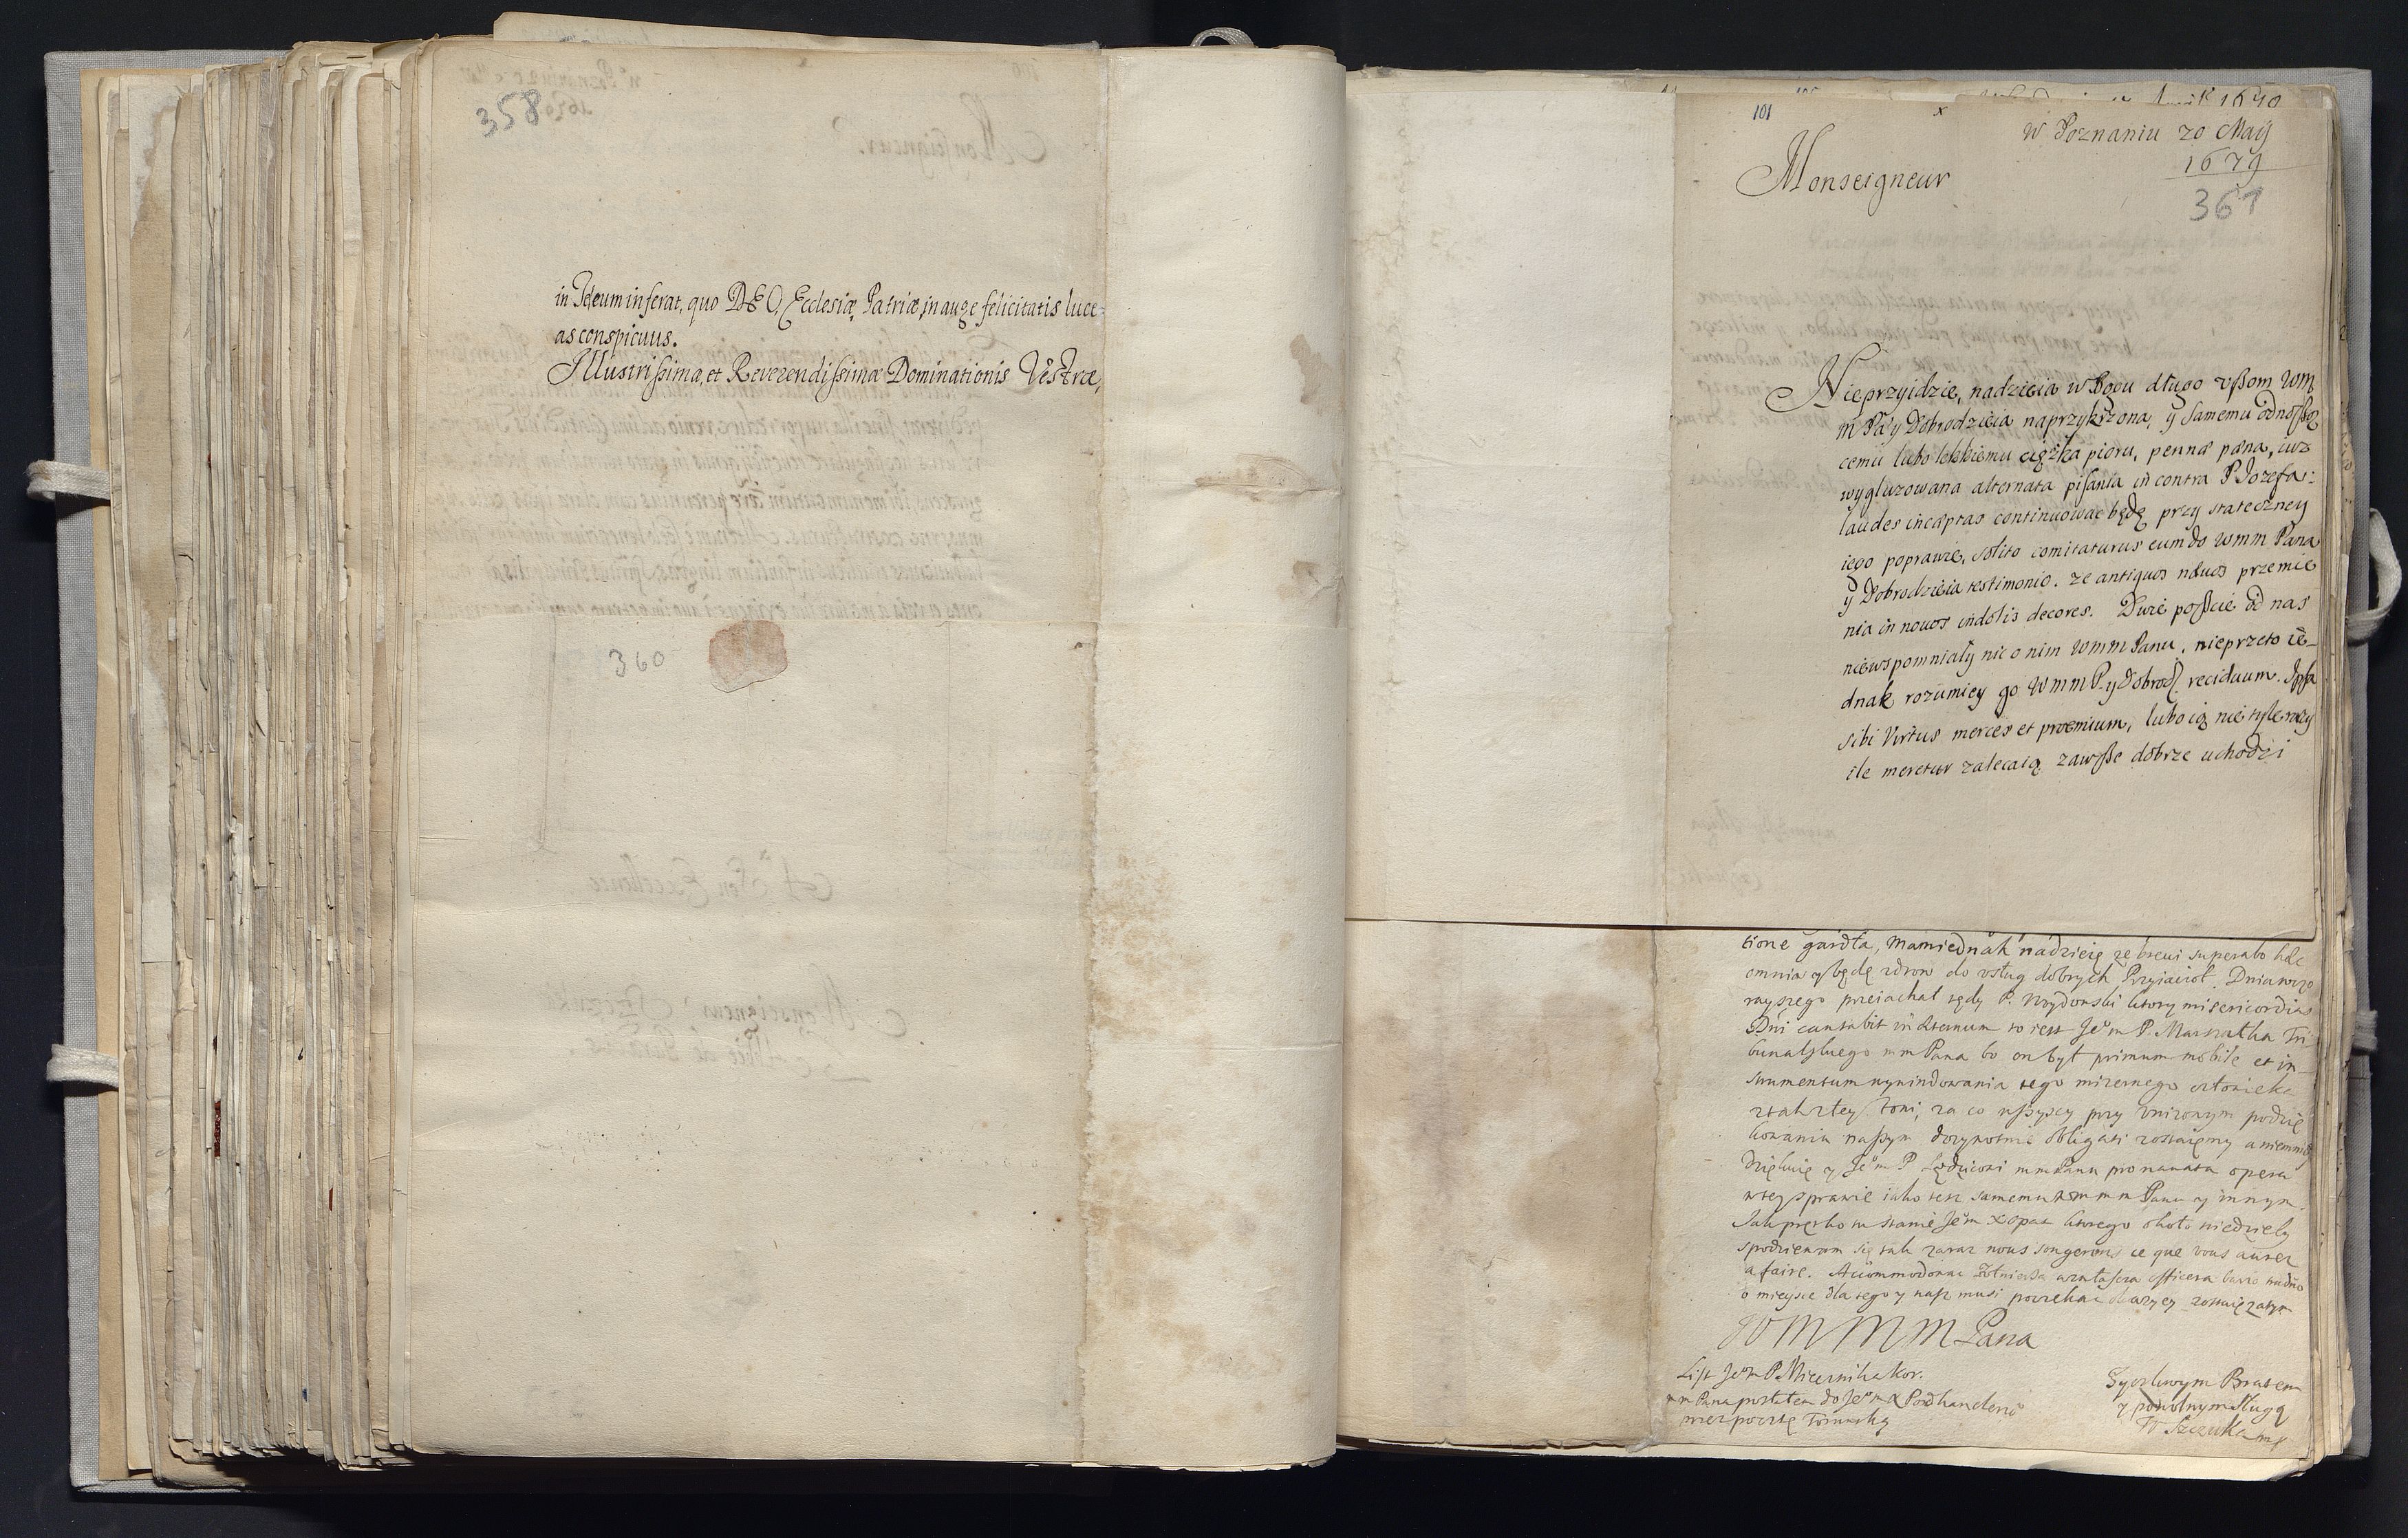 358
in Idæum inferat, quo DEO, Ecclesiæ, Patriæ, in auge felicitatis luce-
as conspicuus.
Illustrissimæ, et Reverendissimæ Dominationis Vestræ,
360
101
w Poznaniu 20 Maij
1679
361
Monseigneur
Nieprzyidzie, nadzieia w Bogu długo vßom Wm
m Pa y Dobrodzieia naprzykrzona, y samemu odnoßą
cemu lubo lekkiemu ciężka pioru, penna pæna, iuz
wygluzowana alternata pisania in contra P Jozefa:
laudes incæptas continuowac będę przy stateczney
iego poprawie, solito comitaturus eum do wmm Pana
y Dobrodzieia testimonio. ze antiquos næuos przemie
nia in nouos indolis decores. Dwie poßcie od nas
niewspomniały nic o nim wmm Panu, nieprzeto ie-
dnak rozumiey go WmmP. y Dobrodz. reciduum. Ipsa
sibi Virtus merces et præmium, lubo ią nie tyle razy
ile meretur zalecaią zawße dobrze uchodzi
tione gardła, mam iednak nadzieię ze breui superabo hæc
omnia y będę zdrow do vsług dobrych Przyiacioł. Dnia wczo
rayszego przeiachał tędy P. ktory misericordias
Dni cantabit in æternum to iest Jeo m P. Marszałka Tri
bunalskiego mmPana bo on był primum mobile et in-
strumentum wywindowania tego mizernego człowieka
z tak złey toni, za co wßyscy przy vnizonym podzię
kowaniu naßym dozywotnie obligati zostaięmy a niemniey
dziękuię y Jeo m P mmPanu pro nauata opera
w tey sprawie iako tesz samemu wmm Panu y innym.
Jak prętko tu stanie Jeo m X opat ktorego około niedziely
spodziewam się tak zaraz nous songerons ce que vous aurez
a faire. Accommodowac zołnierza officera barzo trudno
o mieysce dla tego y nasz musi poczekac zostaię zatym
WMMM Pana
List Jeo m P. Miecznika Kor.
mm Pana posłałem do Jeo m X Podkanclerzo
przez pocztę Torunską
Zyczliwym Bratem
y powolnym sługą
W Szczuka mp